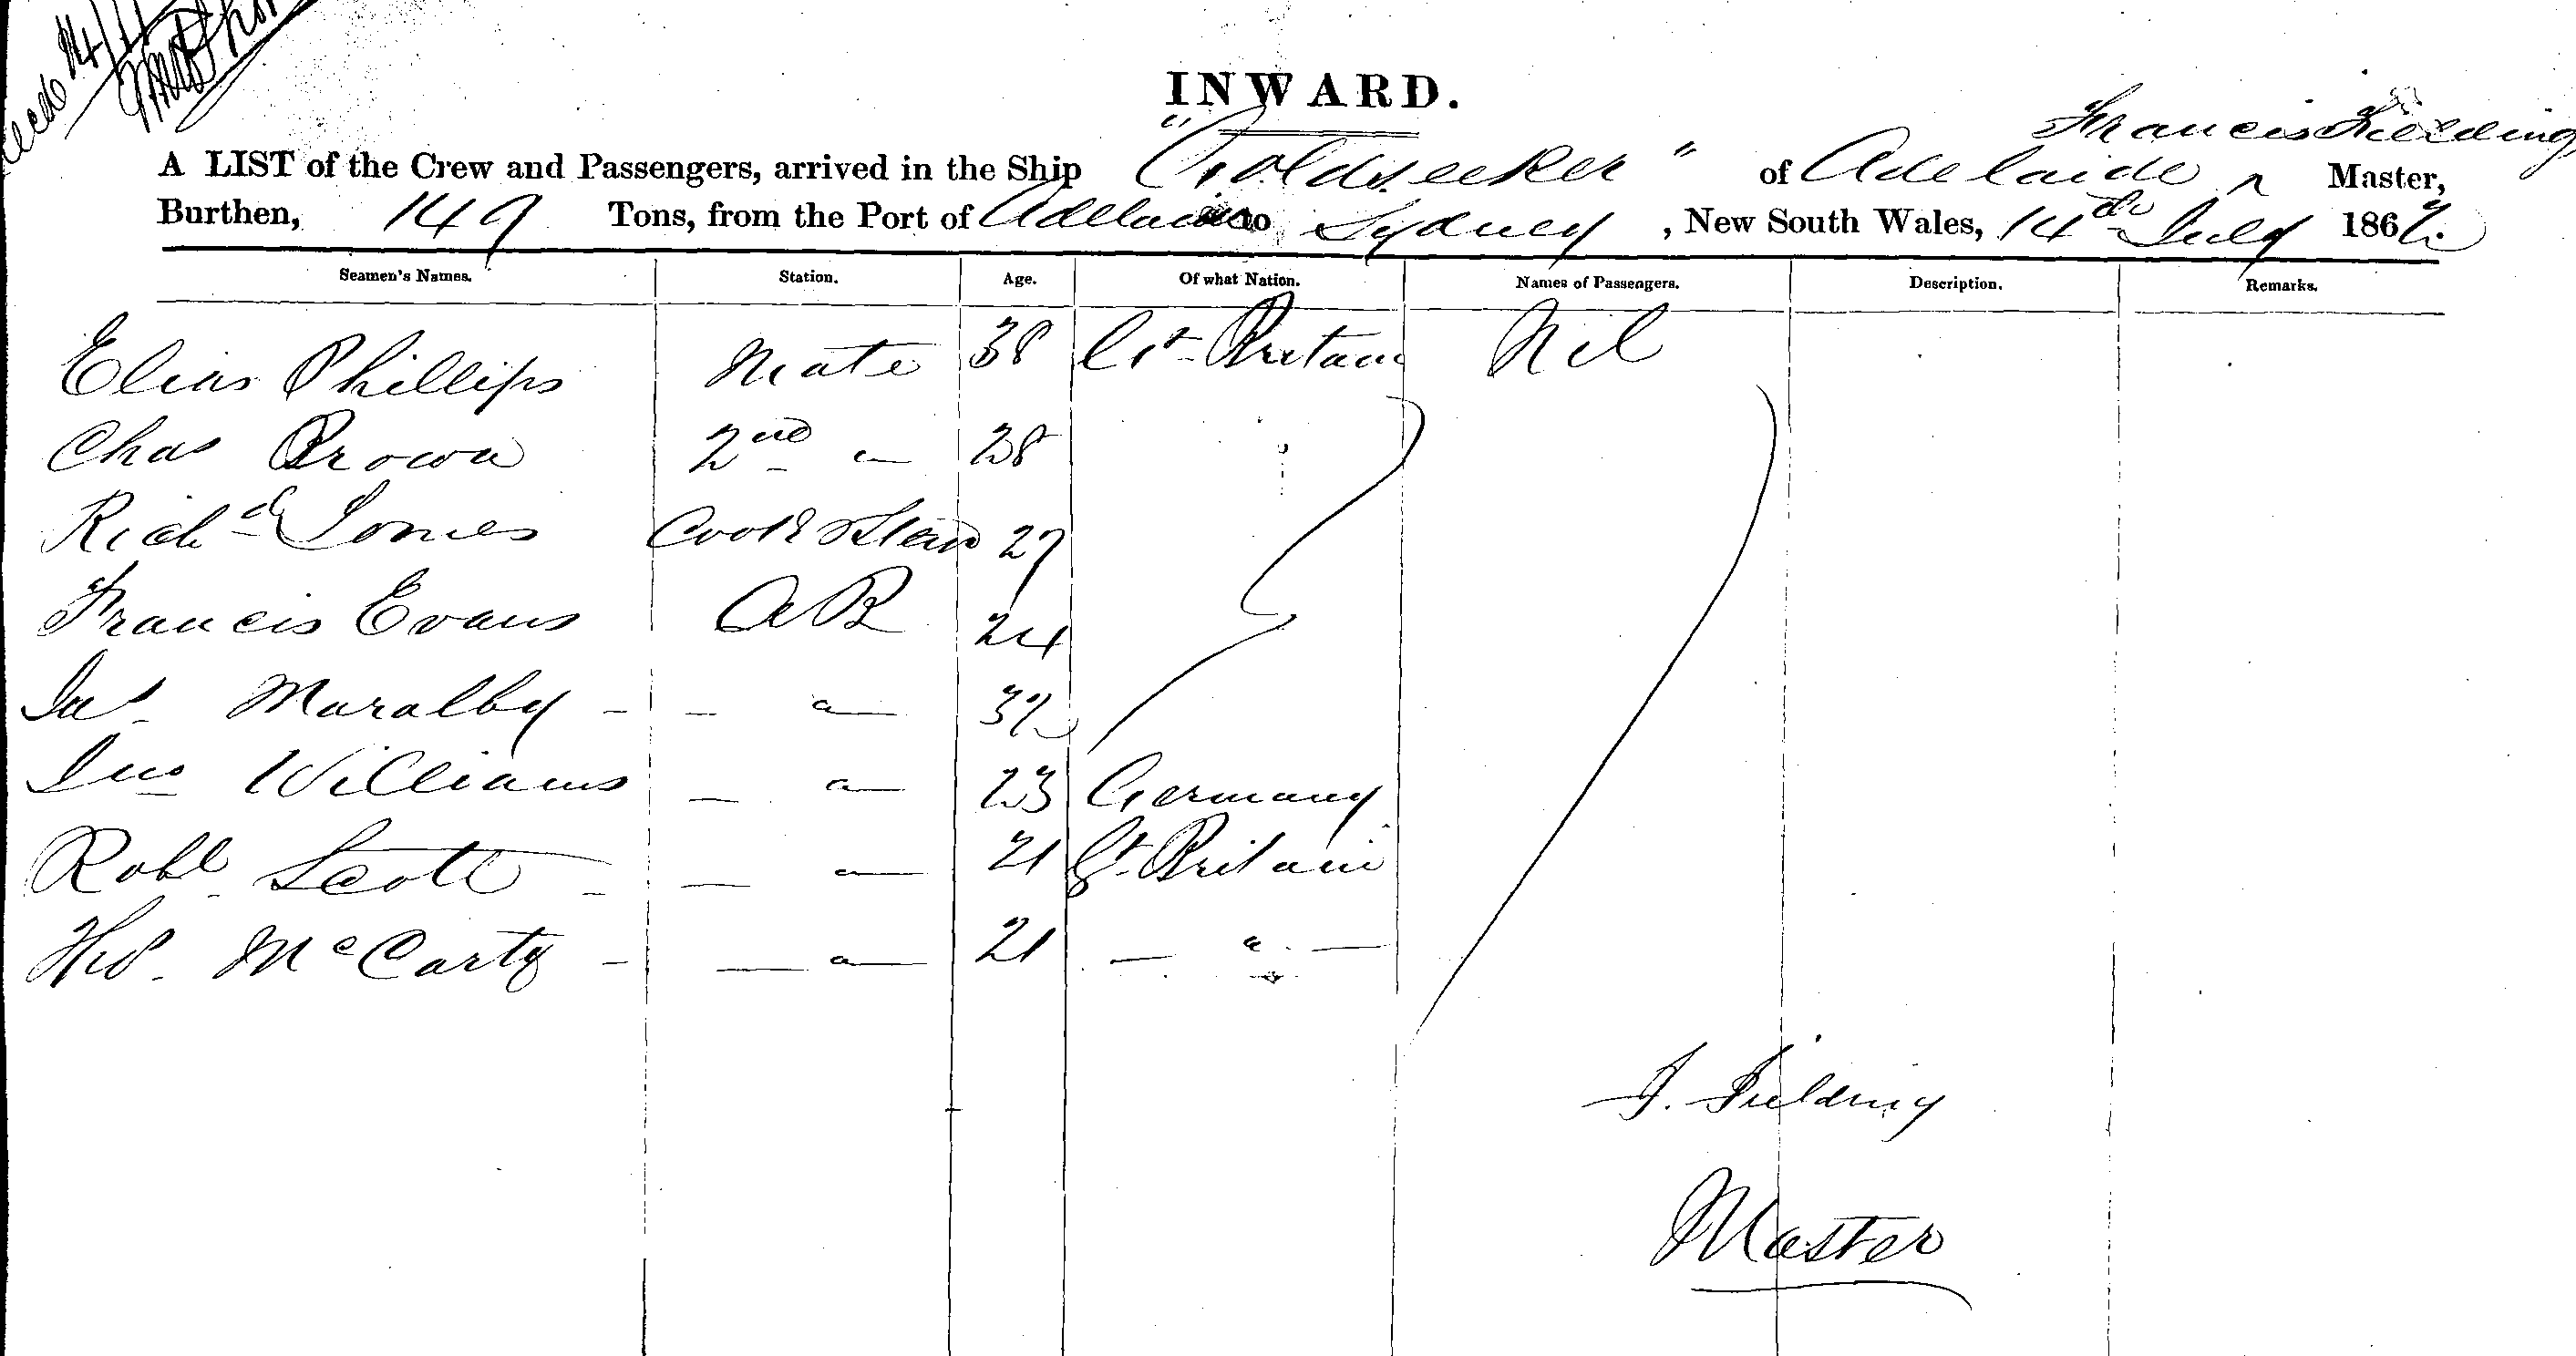 INWARD.
Francis Fielding
A LIST of the Crew and Passengers, arrived in the Ship "Goldseeker" of Adelaide ^ Master,
Burthen, 149 Tons, from the Port of Adelaide to Sydney, New South Wales, 14th July 1862.
Seamen's Names. Station. Age. Of what Nation. Names of Passengers. Description. Remarks.
Elias Phillips Mate 38 Gt Britain Nil
Chas Brown 2nd " 28
Richd Jones Cook & Stewd 27
Francis Evans AB 24
Jas Maralby - - " - 32
Jno Williams - " - 23 Germany
Robt Scott - - " - 21 Gt Britain
McCarty - - " - 21 - " -
F. Fielding
Master